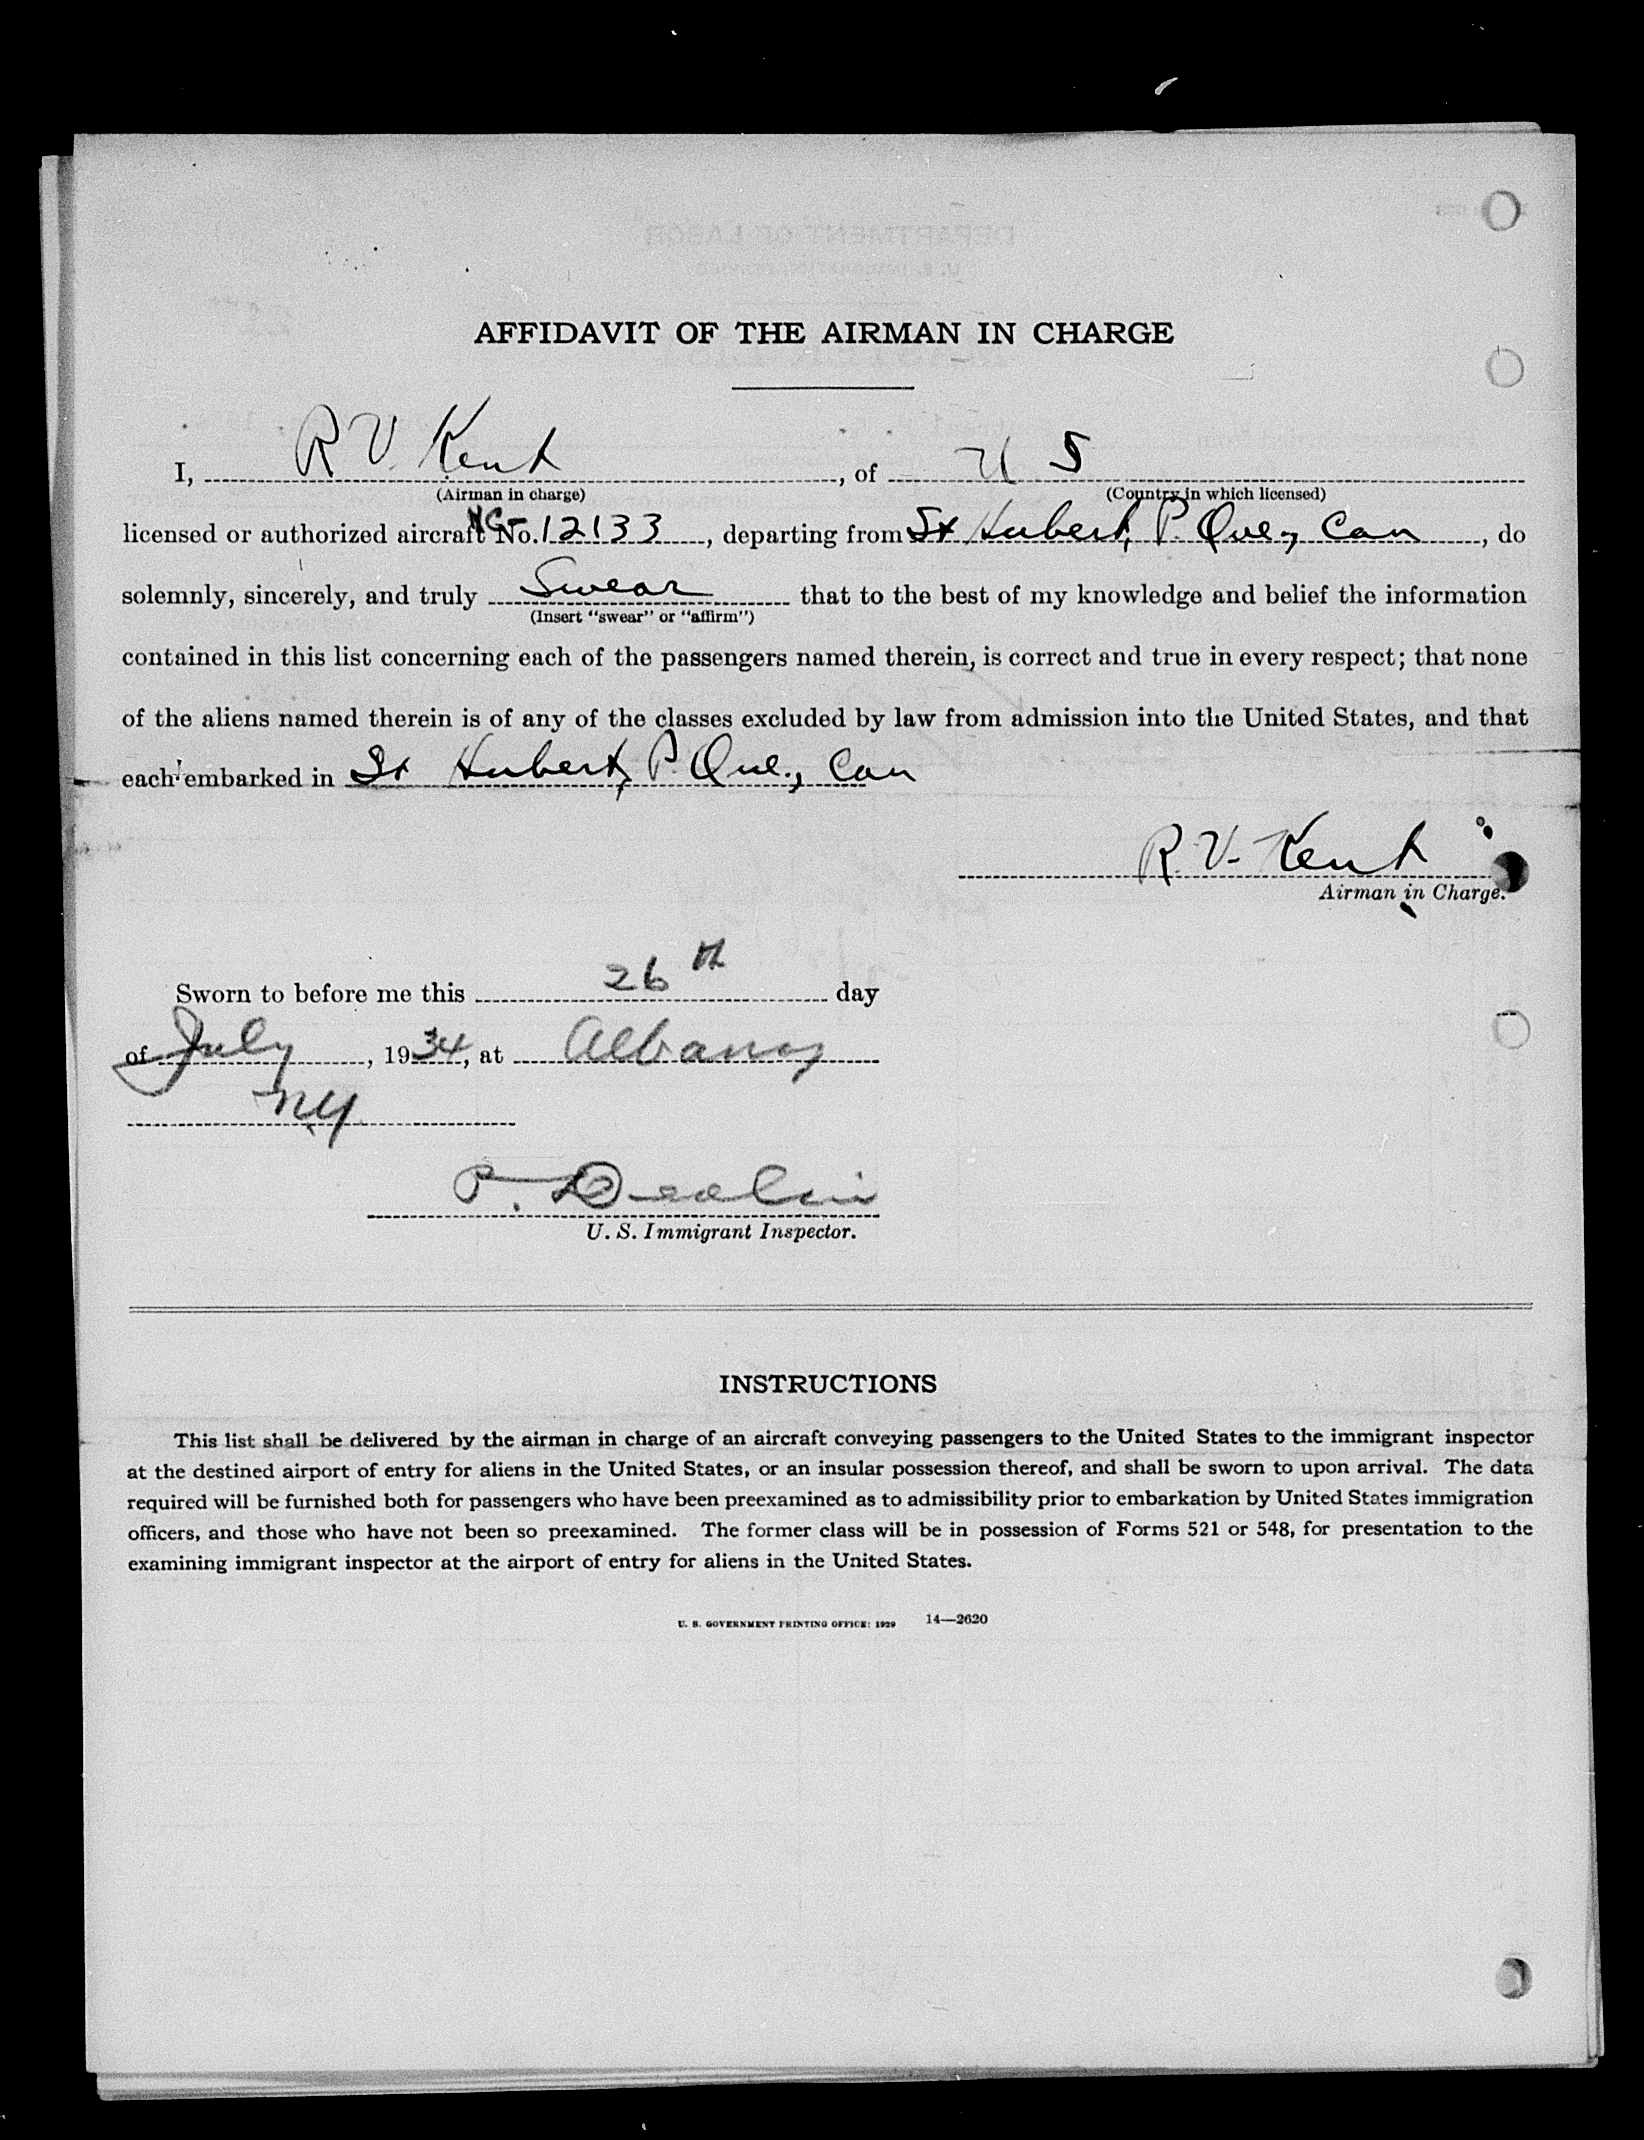 AFFIDAVIT OF THE AIRMAN IN CHARGE
I, R V. Kent, of U S
(Airman in charge) (Country in which licensed)
licensed or authorized aircraft NC- No. 12133, departing from St Hubert, P. Que, Can, do
solemnly, sincerely, and truly Swear that to the best of my knowledge and belief the information
(Insert "swear" or "affirm")
contained in this list concerning each of the passengers named therein, is correct and true in every respect; that none
of the aliens named therein is of any of the classes excluded by law from admission into the United States, and that
each embarked in St Hubert, P. Que., Can
R. V. Kent
Airman in Charge.
Sworn to before me this 26th day
of July, 1934, at Albany
N.Y.
P.
U. S. Immigrant Inspector.
INSTRUCTIONS
This list shall be delivered by the airman in charge of an aircraft conveying passengers to the United States to the immigrant inspector
at the destined airport of entry for aliens in the United States, or an insular possession thereof, and shall be sworn to upon arrival. The data
required will be furnished both for passengers who have been preexamined as to admissibility prior to embarkation by United States immigration
officers, and those who have not been so preexamined. The former class will be in possession of Forms 521 or 548, for presentation to the
examining immigrant inspector at the airport of entry for aliens in the United States.
U. S. GOVERNMENT PRINTING OFFICE: 1929 14—2620